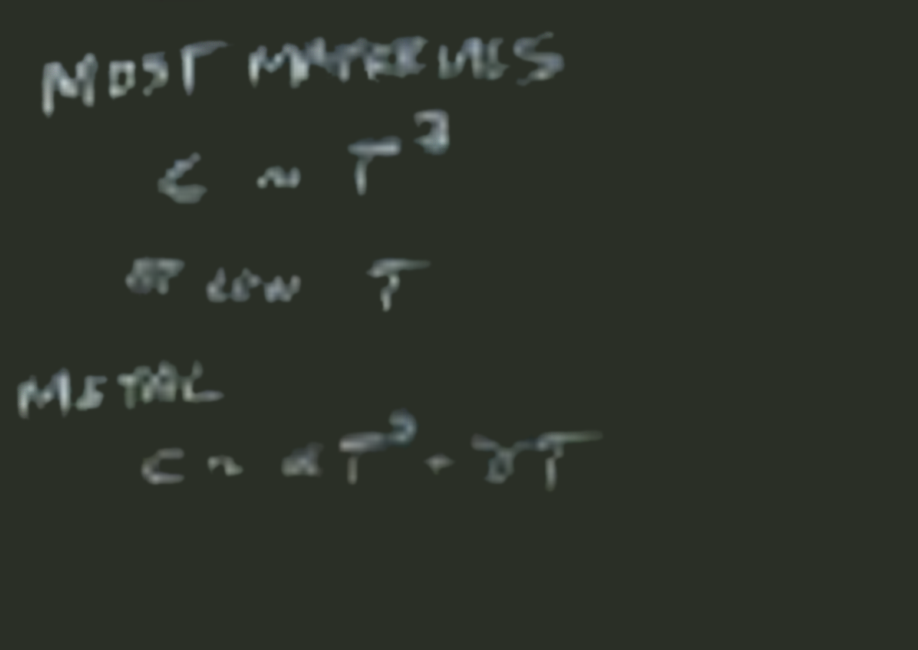 MOST MATERIALS
C ~ T³
AT LOW T
METAL
C ~ αT³ + γT